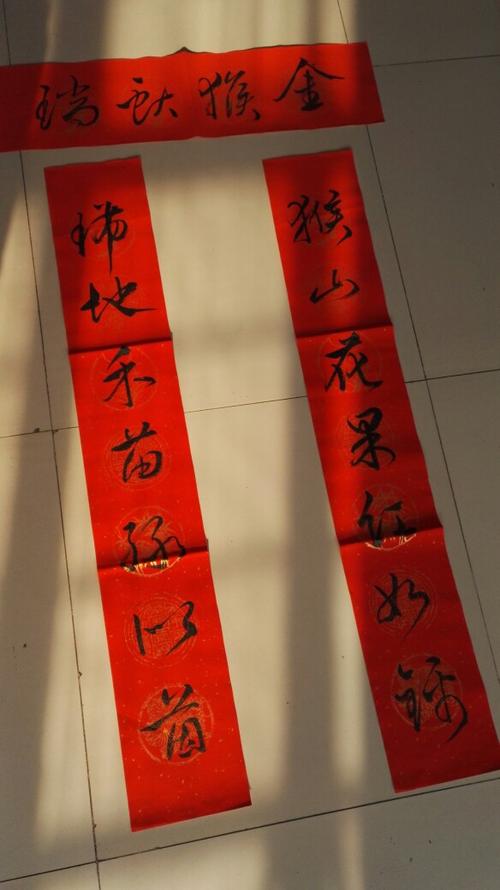 金猴献瑞
猴山花果红如锦
地禾苗绿似茵